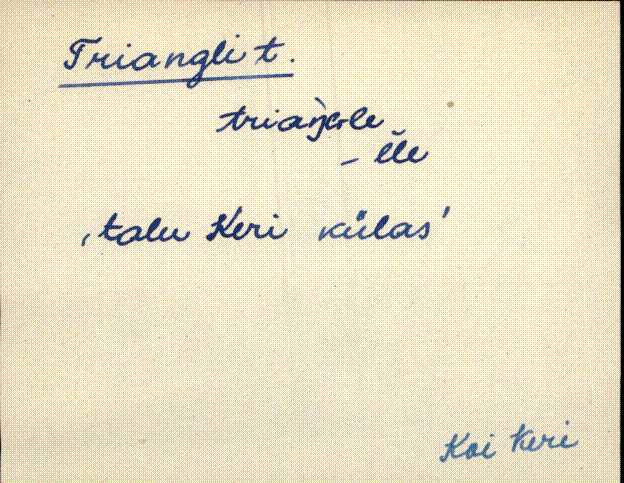 Triangli t.
triaŋ́kle
– ĕle
‚talu Keri külas'
Koi Keri